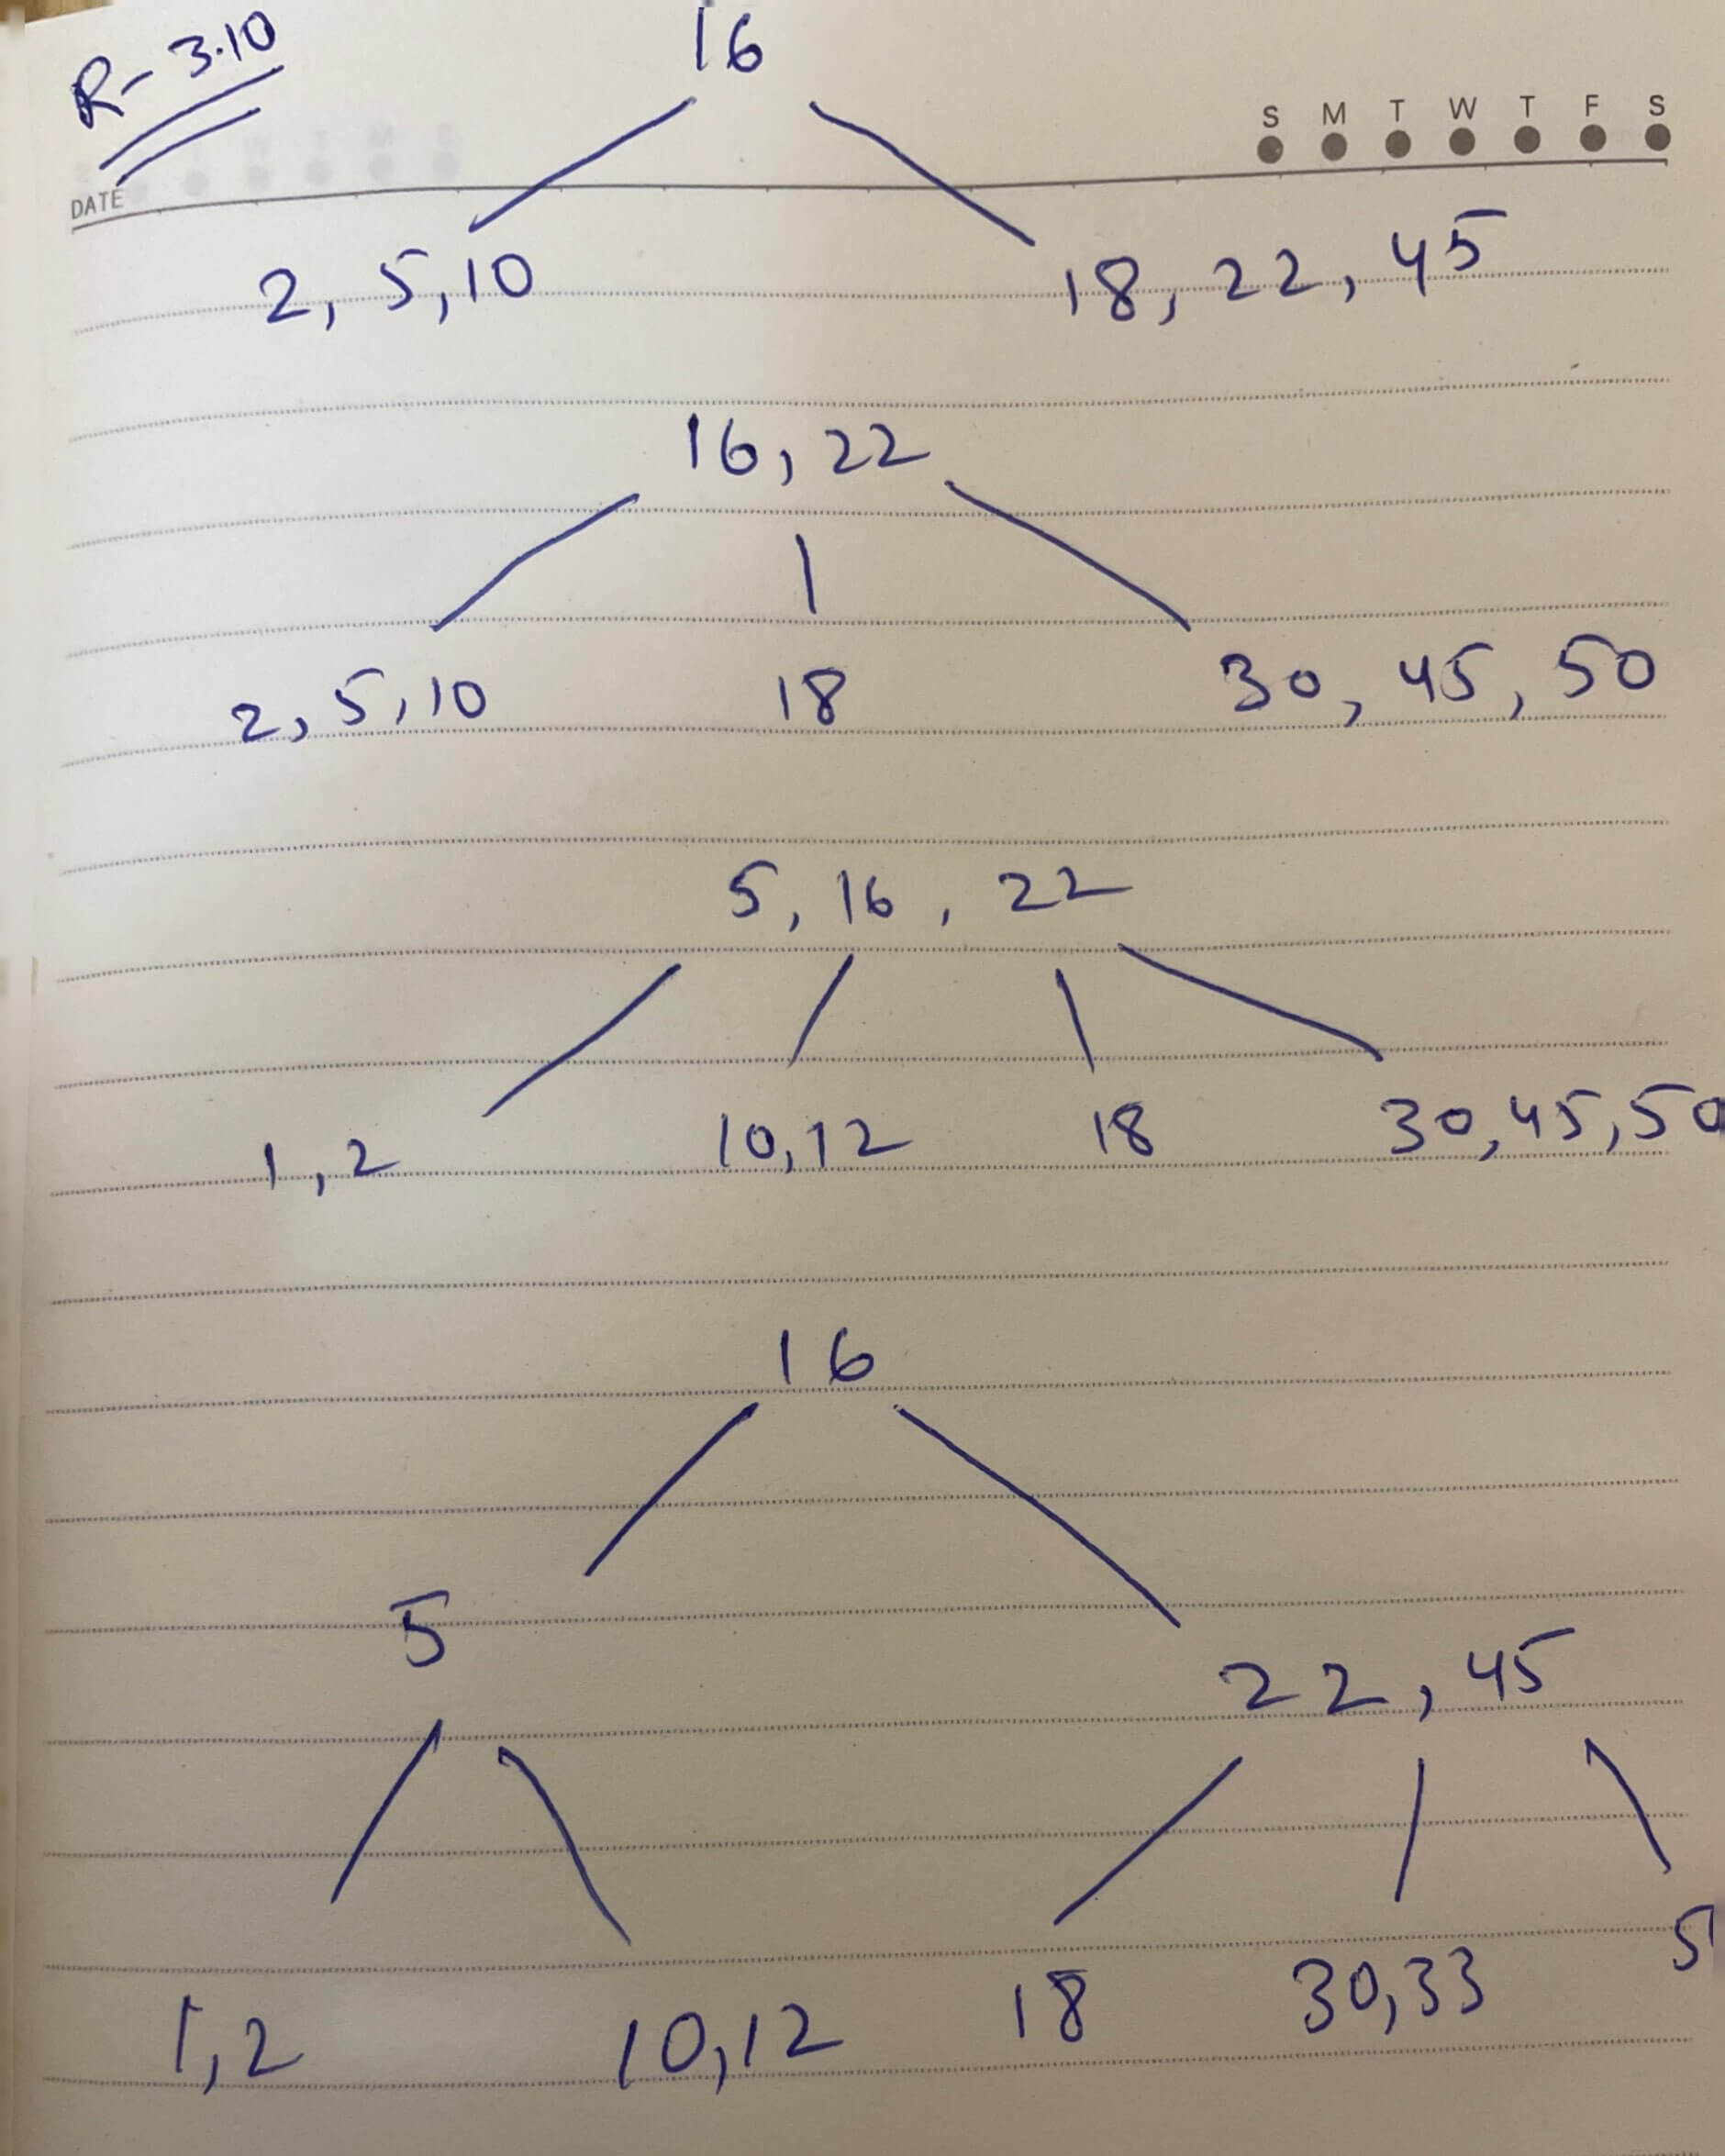 R-3.10
16
S M T W T F S
DATE
2, 5, 10
18, 22, 45
16, 22
2, 5, 10
18
30, 45, 50
5, 16, 22
1, 2
10, 12
18
30, 45, 50
16
5
22, 45
1, 2
10, 12
18
30, 33
5